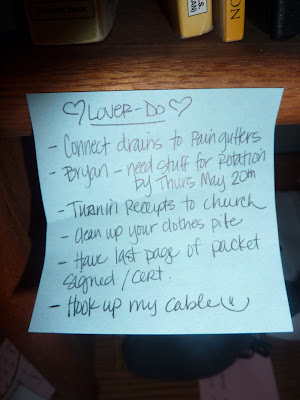 ♡LOVER-DO♡
- Connect drains to Rain gutters
- Bryan - need stuff for Rotation
by Thurs May 20th
- Turn in Receipts to church
- Clean up your clothes pile
- Have last page of packet
signed/cert.
- Hook up my cable